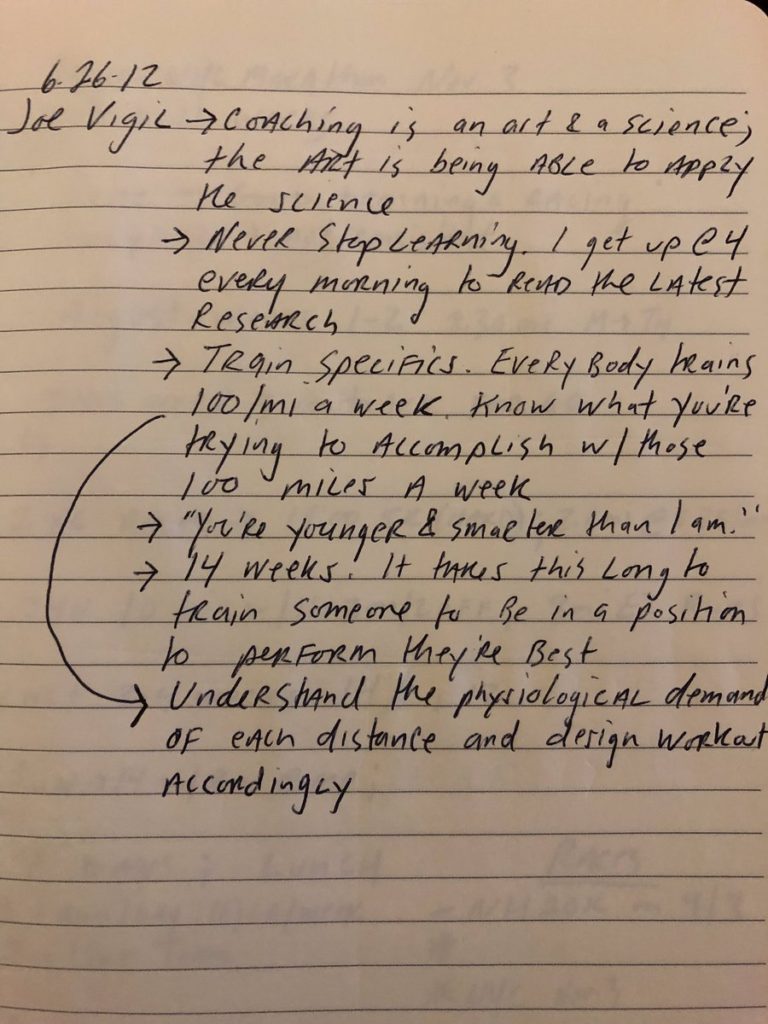 6-26-12
Joe Vigil → Coaching is an art & a science;
the ART is being ABLE to APPLY
the science
→ Never Stop Learning. I get up @ 4
every morning to READ the LAtest
Research
→ Train Specifics. EveryBody trains
100/mi a week. Know what you're
trying to Accomplish w/ those
100 miles A week
→ "You're younger & smarter than I am."
→ 14 weeks! It takes this Long to
train someone to Be in a position
to perform they're Best
→ Understand the physiological demand
of each distance and design workout
Accordingly
Races